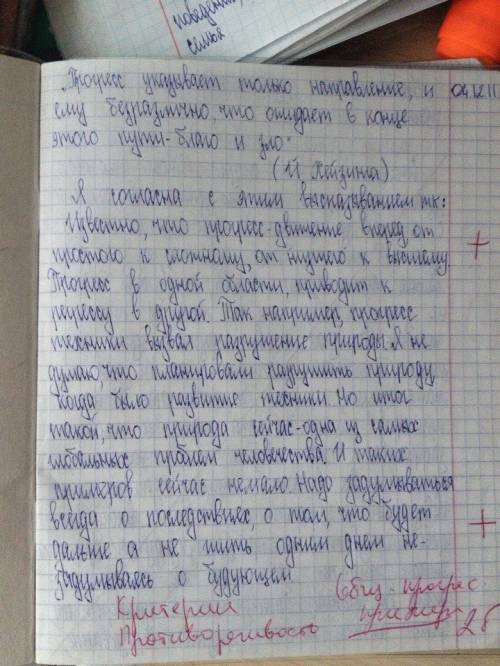 победить,
семья
„Прогресс указывает только направление, и 04.12.11
ему безразлично, что ожидает в конце
этого пути - благо и зло"
(Й Хейзинга)
Я согласна с этим высказыванием тк:
Известно, что прогресс - движение вперед, от
простого к сложному, от низшего к высшему.
Прогресс в одной области, приводит к
регрессу в другой. Так например, прогресс
техники вызвал разрушение природы. Я не
думаю, что планировали разрушить природу,
когда было развитие техники. Но итог
такой, что природа сейчас - одна из самых
глобальных проблем человечества. И таких
примеров сейчас немало. Надо задумываться
всегда о последствиях, о том, что будет
дальше а не жить одним днем не-
задумываясь о будующем
Критерии
Противоречивость
(общ. прогрес.
пример
2б